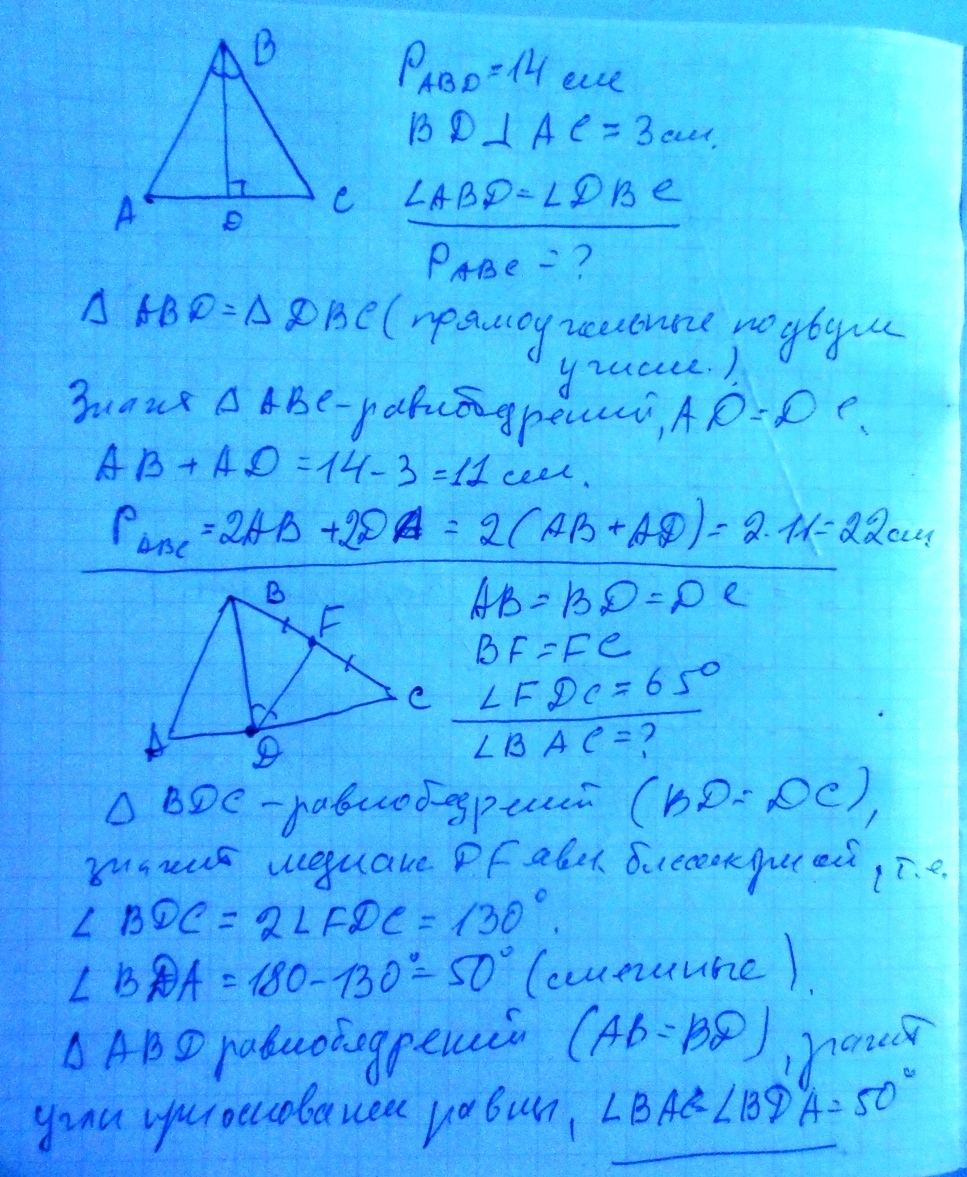 B
A
D
C
P ABD = 14 см
BD ⊥ AC = 3 см.
∠ABD = ∠DBC
P ABC = ?
Δ ABD = Δ DBC (прямоугольные по двум
углам.)
Значит Δ ABC - равнобедрений, AD = DC.
AB + AD = 14 - 3 = 11 см.
P ABC = 2AB + 2DA = 2(AB + AD) = 2·11 = 22 см
B
F
C
A
D
AB = BD = DC
BF = FC
∠FDC = 65°
∠BAC = ?
Δ BDC - равнобедрений (BD = DC),
значит медиана DF явл. биссектрисой, т.е.
∠ BDC = 2∠FDC = 130°.
∠ BDA = 180 - 130° = 50° (смежные).
Δ ABD равнобедрений (AB = BD), значит
углы при основании равны, ∠BAC = ∠BDA = 50°